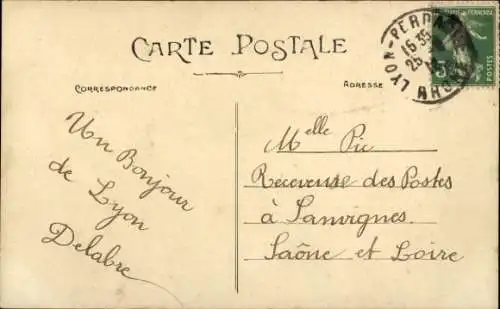 CARTE POSTALE
CORRESPONDANCE
ADRESSE
LYON-PERRACHE
16 35
RHONE
POSTES
Un Bonjour
de Lyon
Delabre
Melle Pic
Receveuse des Postes
à Sanvignes
Saône et Loire